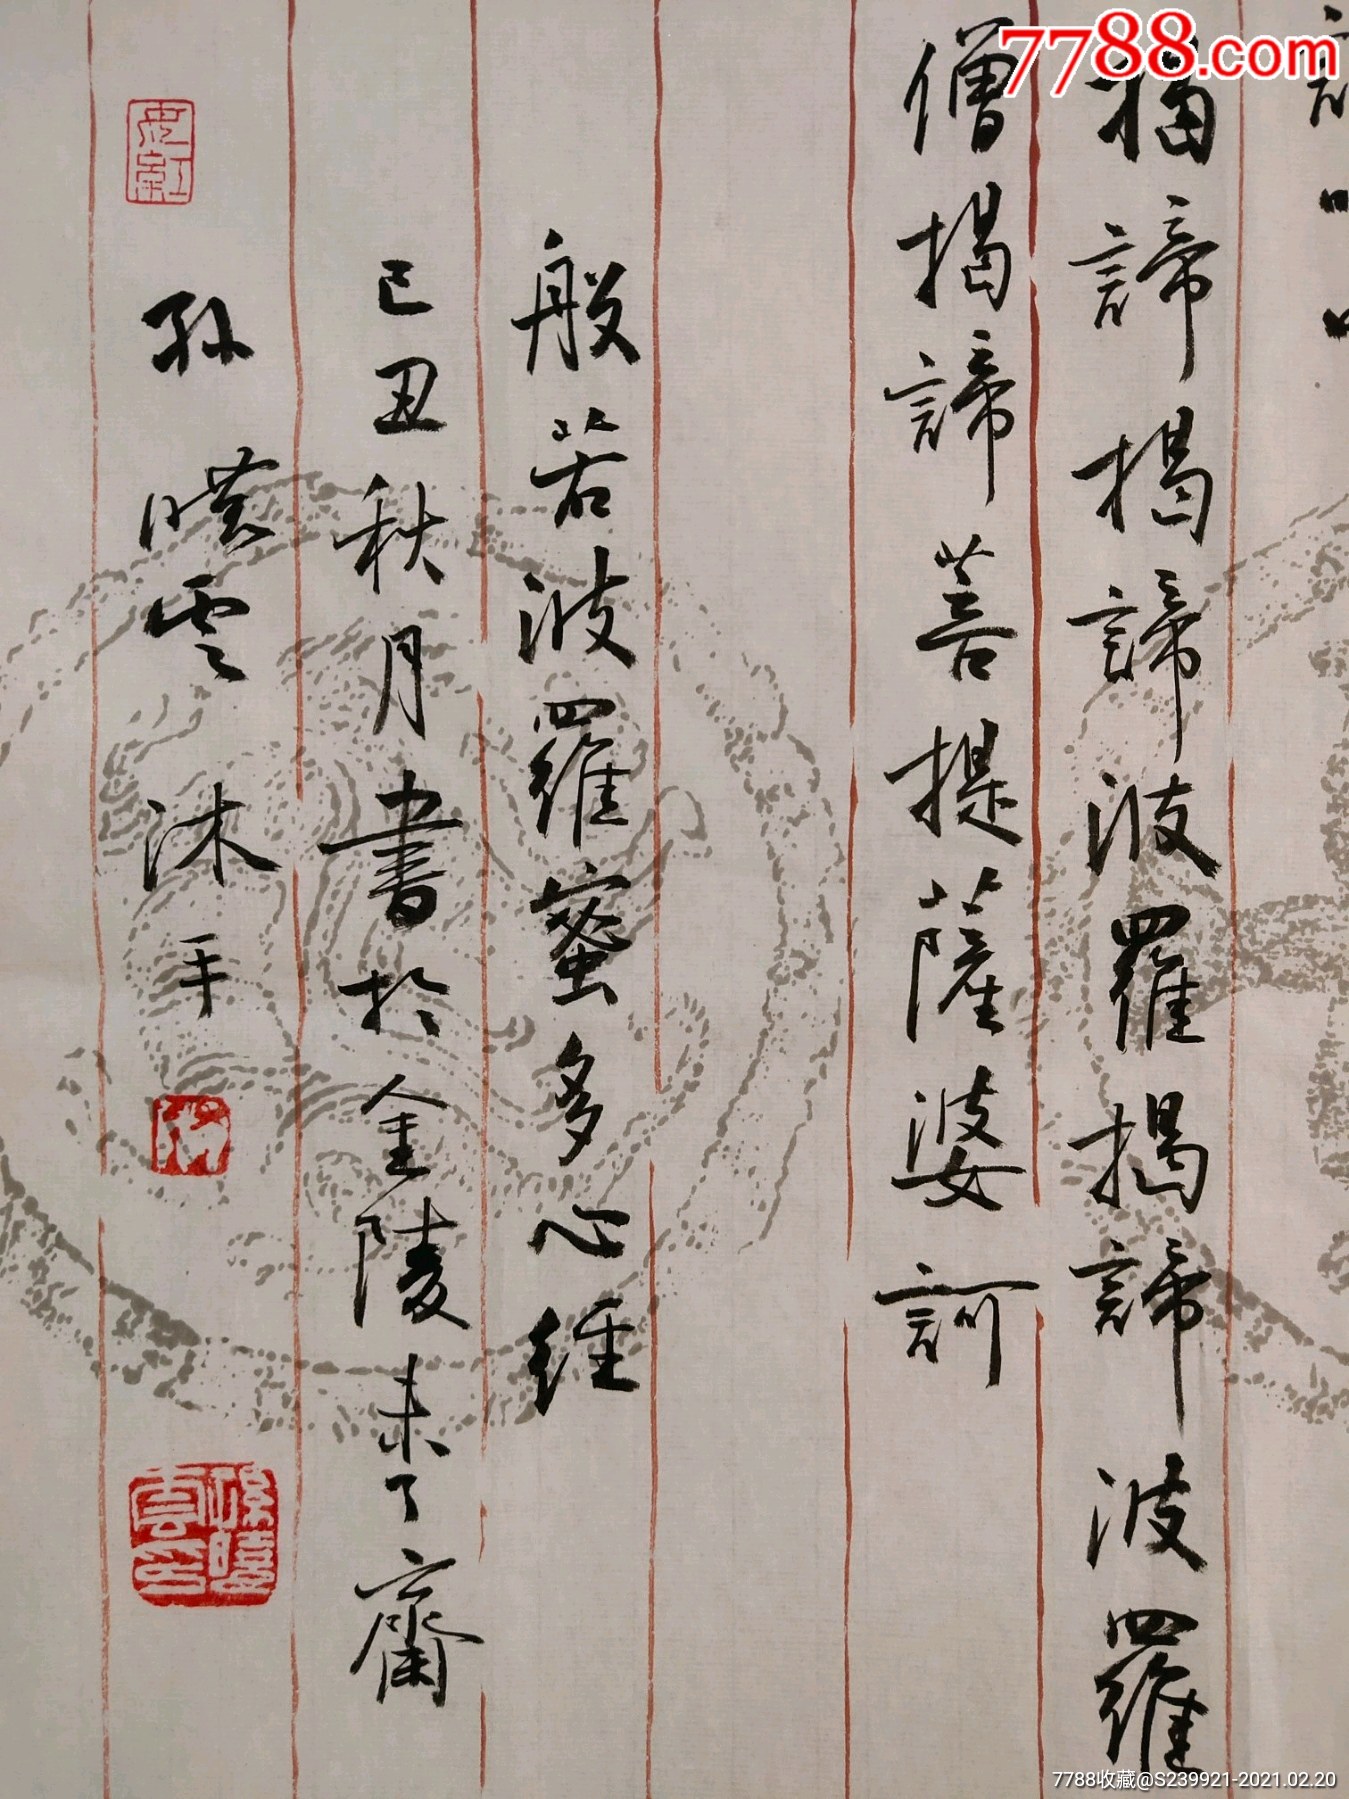 7788.com
揭諦揭諦波羅揭諦波羅
僧揭諦菩提薩婆訶
般若波羅蜜多心經
己丑秋月書於金陵未了齋
孫曉雲沐手
孫曉雲印
7788收藏@S239921-2021.02.20